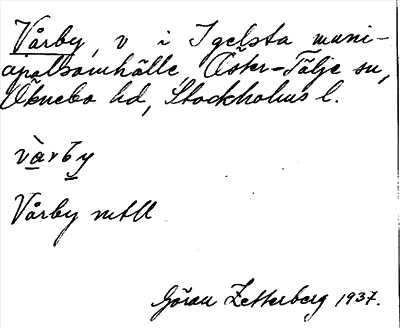 Vårby, v i Igelsta muni-
cipalsamhälle Öster-Tälje sn,
Öknebo hd, Stockholms l.
vàrby
Vårby mtll
Göran Zetterberg 1937.